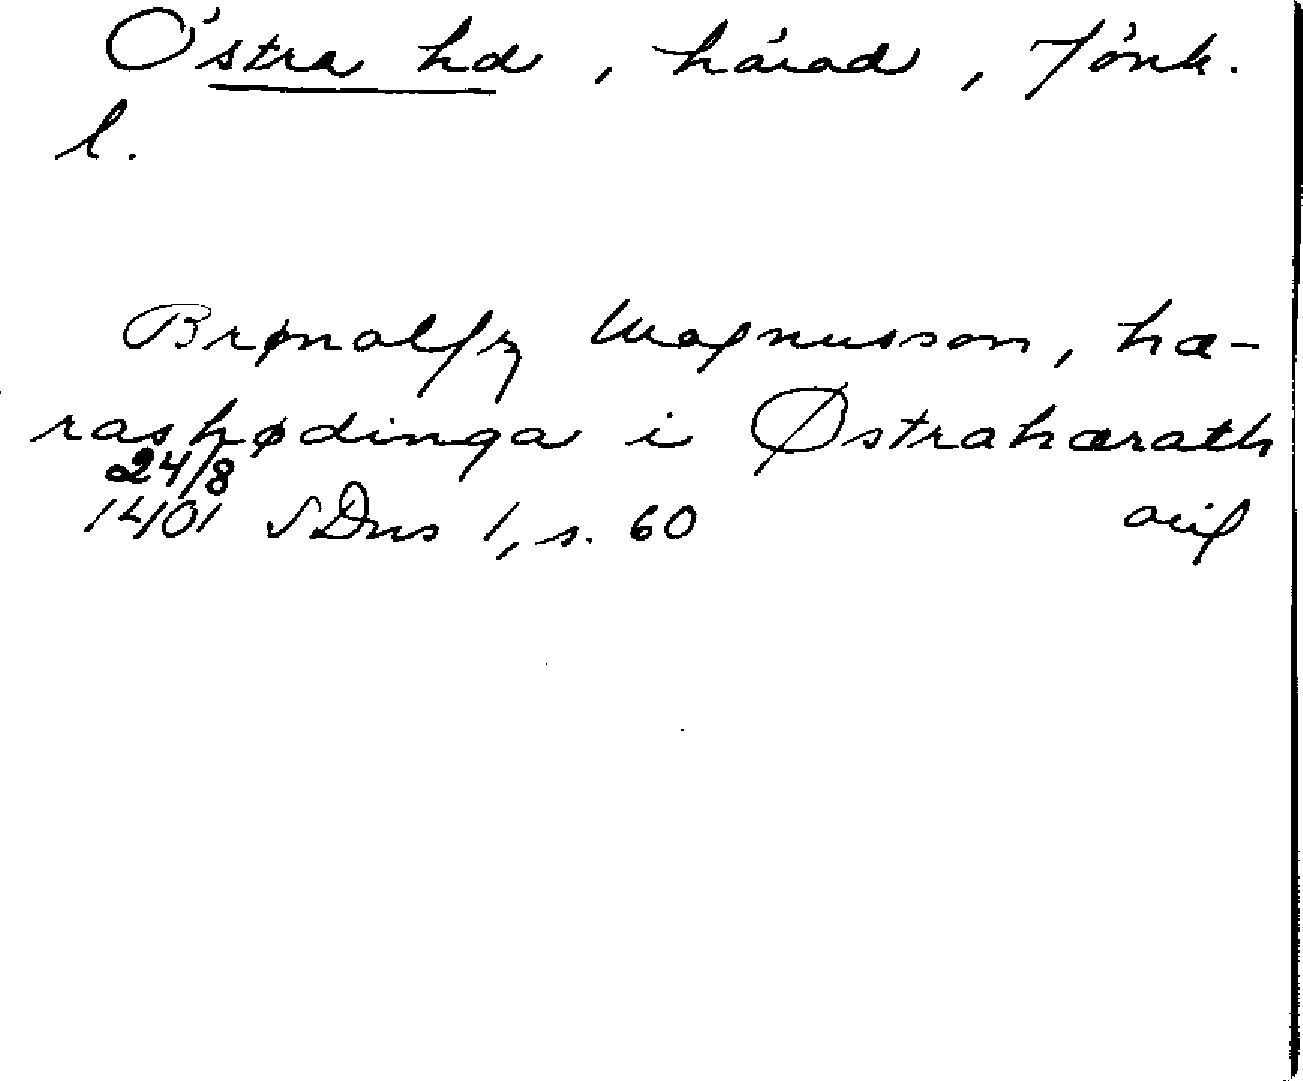 Östra hd, härad, Jönk.
l.
Brynolffz Magnusson, hæ-
rashødinga i Østrahærath
24/8
1401 SDns 1, s. 60 orig